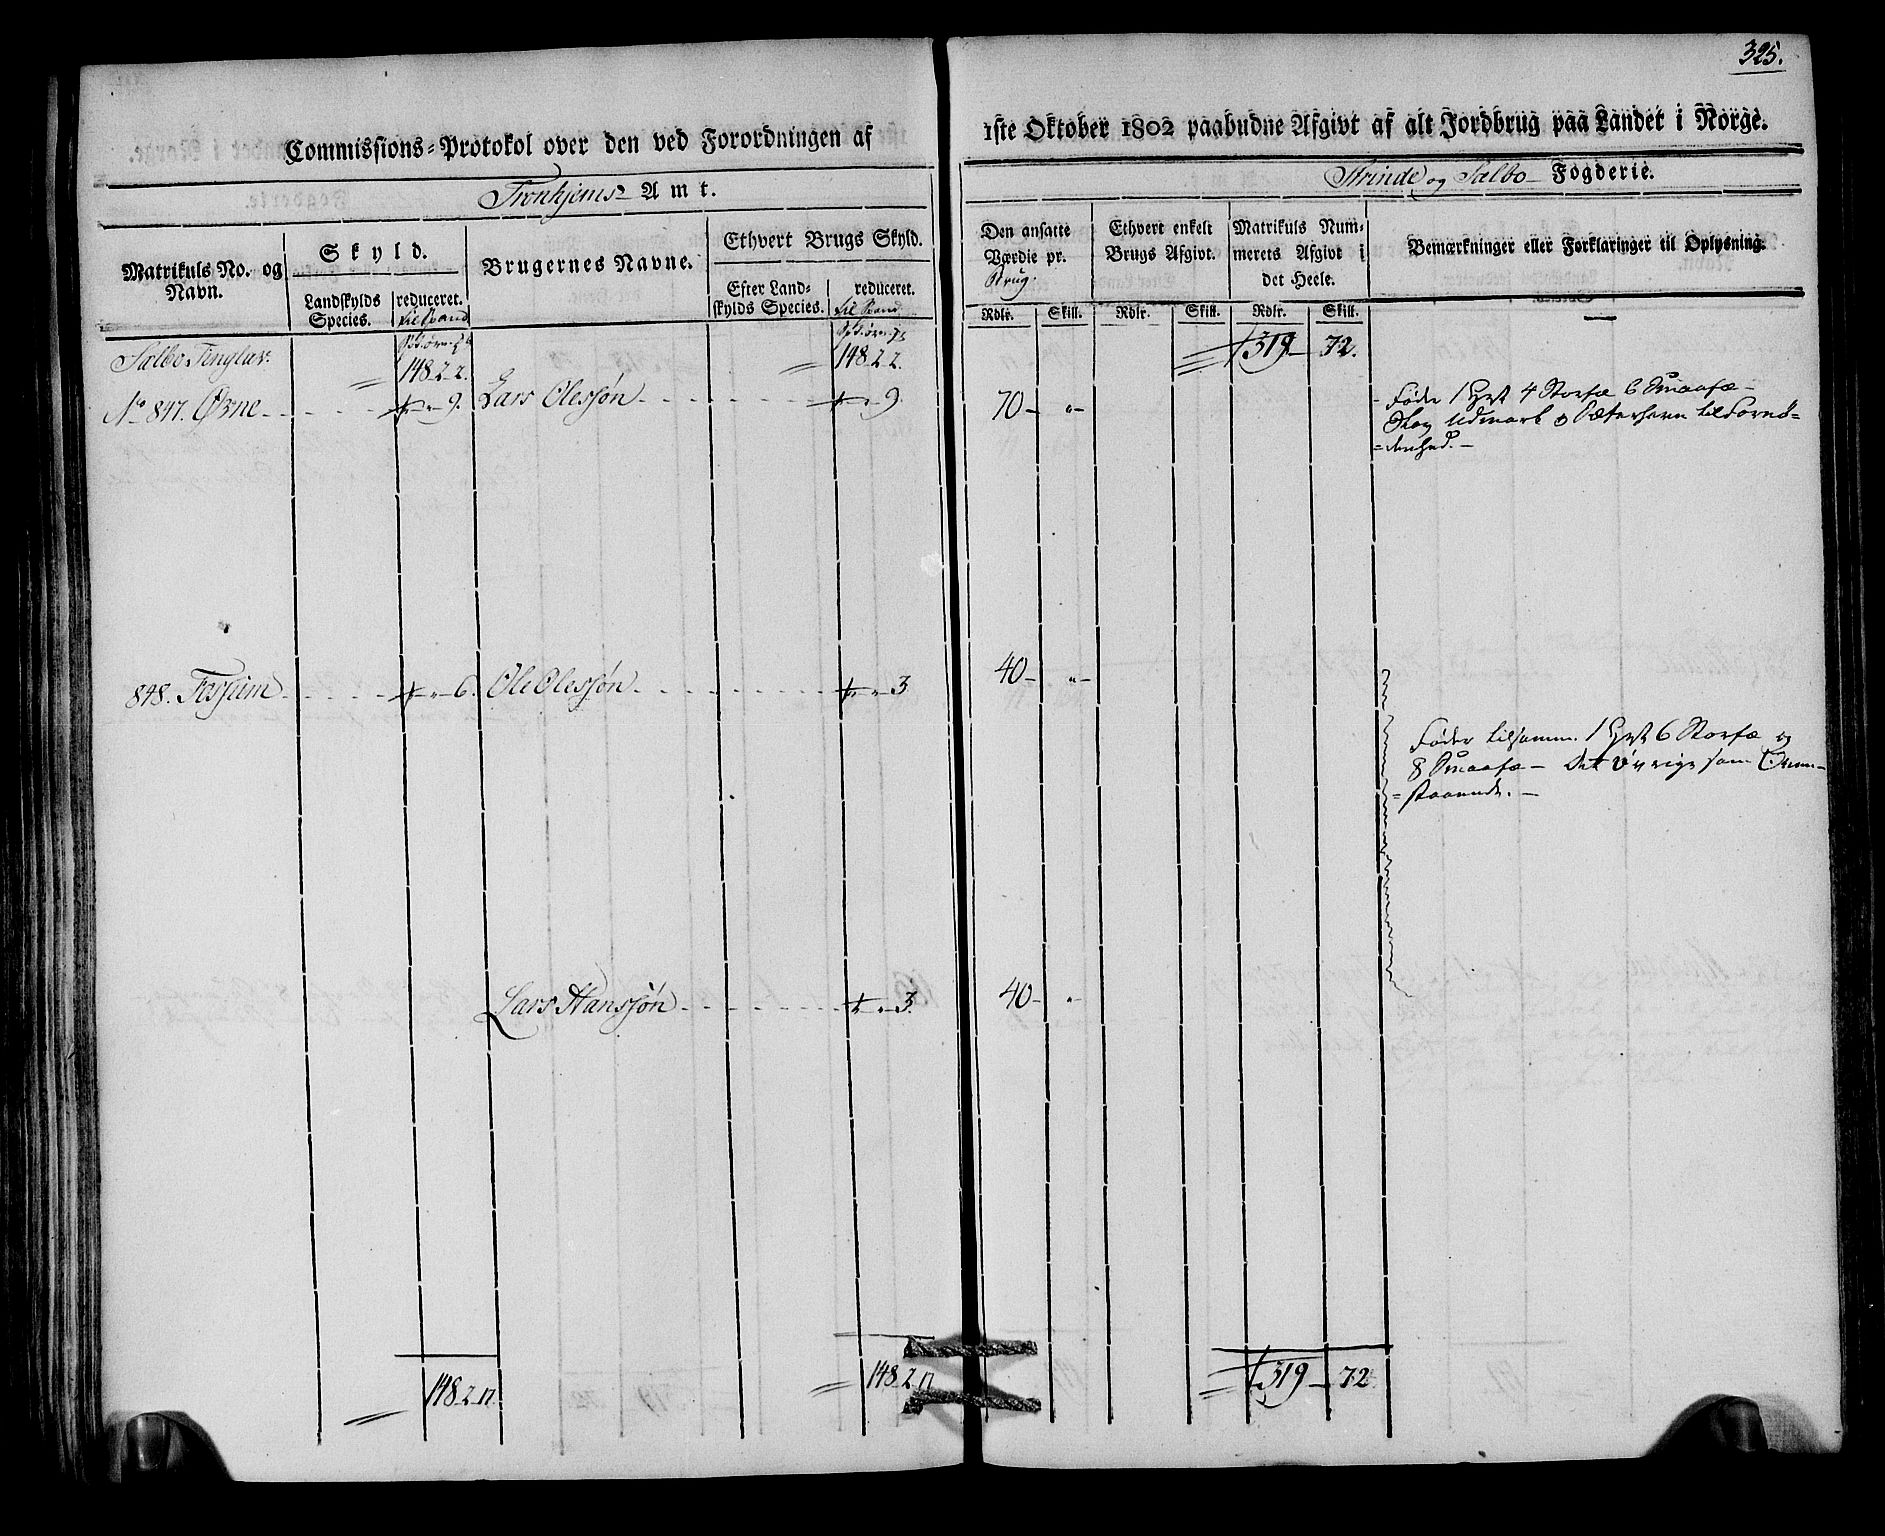 325.
Commissions-Protokol over den ved Forordningen af
1ste Oktober 1802 paabudne Afgivt af alt Jordbrug paa Landet i Norge.
Tronhjems Amt.
Strinde og Sælbo Fogderie.
Matrikuls No. og Navn.
Skyld.
Landskylds Species.
reduceret. til Spand
Brugernes Navne.
Ethvert Brugs Skyld.
Efter Landskylds Species.
reduceret. til Spand
Den ansatte Værdie pr. Brug.
Ethvert enkelt Brugs Afgivt.
Matrikuls Nummerets Afgivt i det Heele.
Bemærkninger eller Forklaringer til Oplysning.
Rdlr. Skill. Rdlr. Skill. Rdlr. Skill.
Sælbo Tinglav. 148.2.2. 148.2.2. 1319 - 72.
No 847. Øvne 9. Lars Olessøn 9. 70 - "-
Føder 1 Hest 4 Storfæ 6 Smaafæ -
Skov Udmark og Sæterhavn til Fornø=
=denhed. -
848. Fossum 6. Ole Olessøn 3. 40 - "-
Føder tilsamm. 1 Hest 6 Storfæ og
8 Smaafæ - Det øvrige som Oven=
=staaende. -
Lars Hanssøn 3. 40 - "-
148.2.17. 148.2.17 1319 - 72.